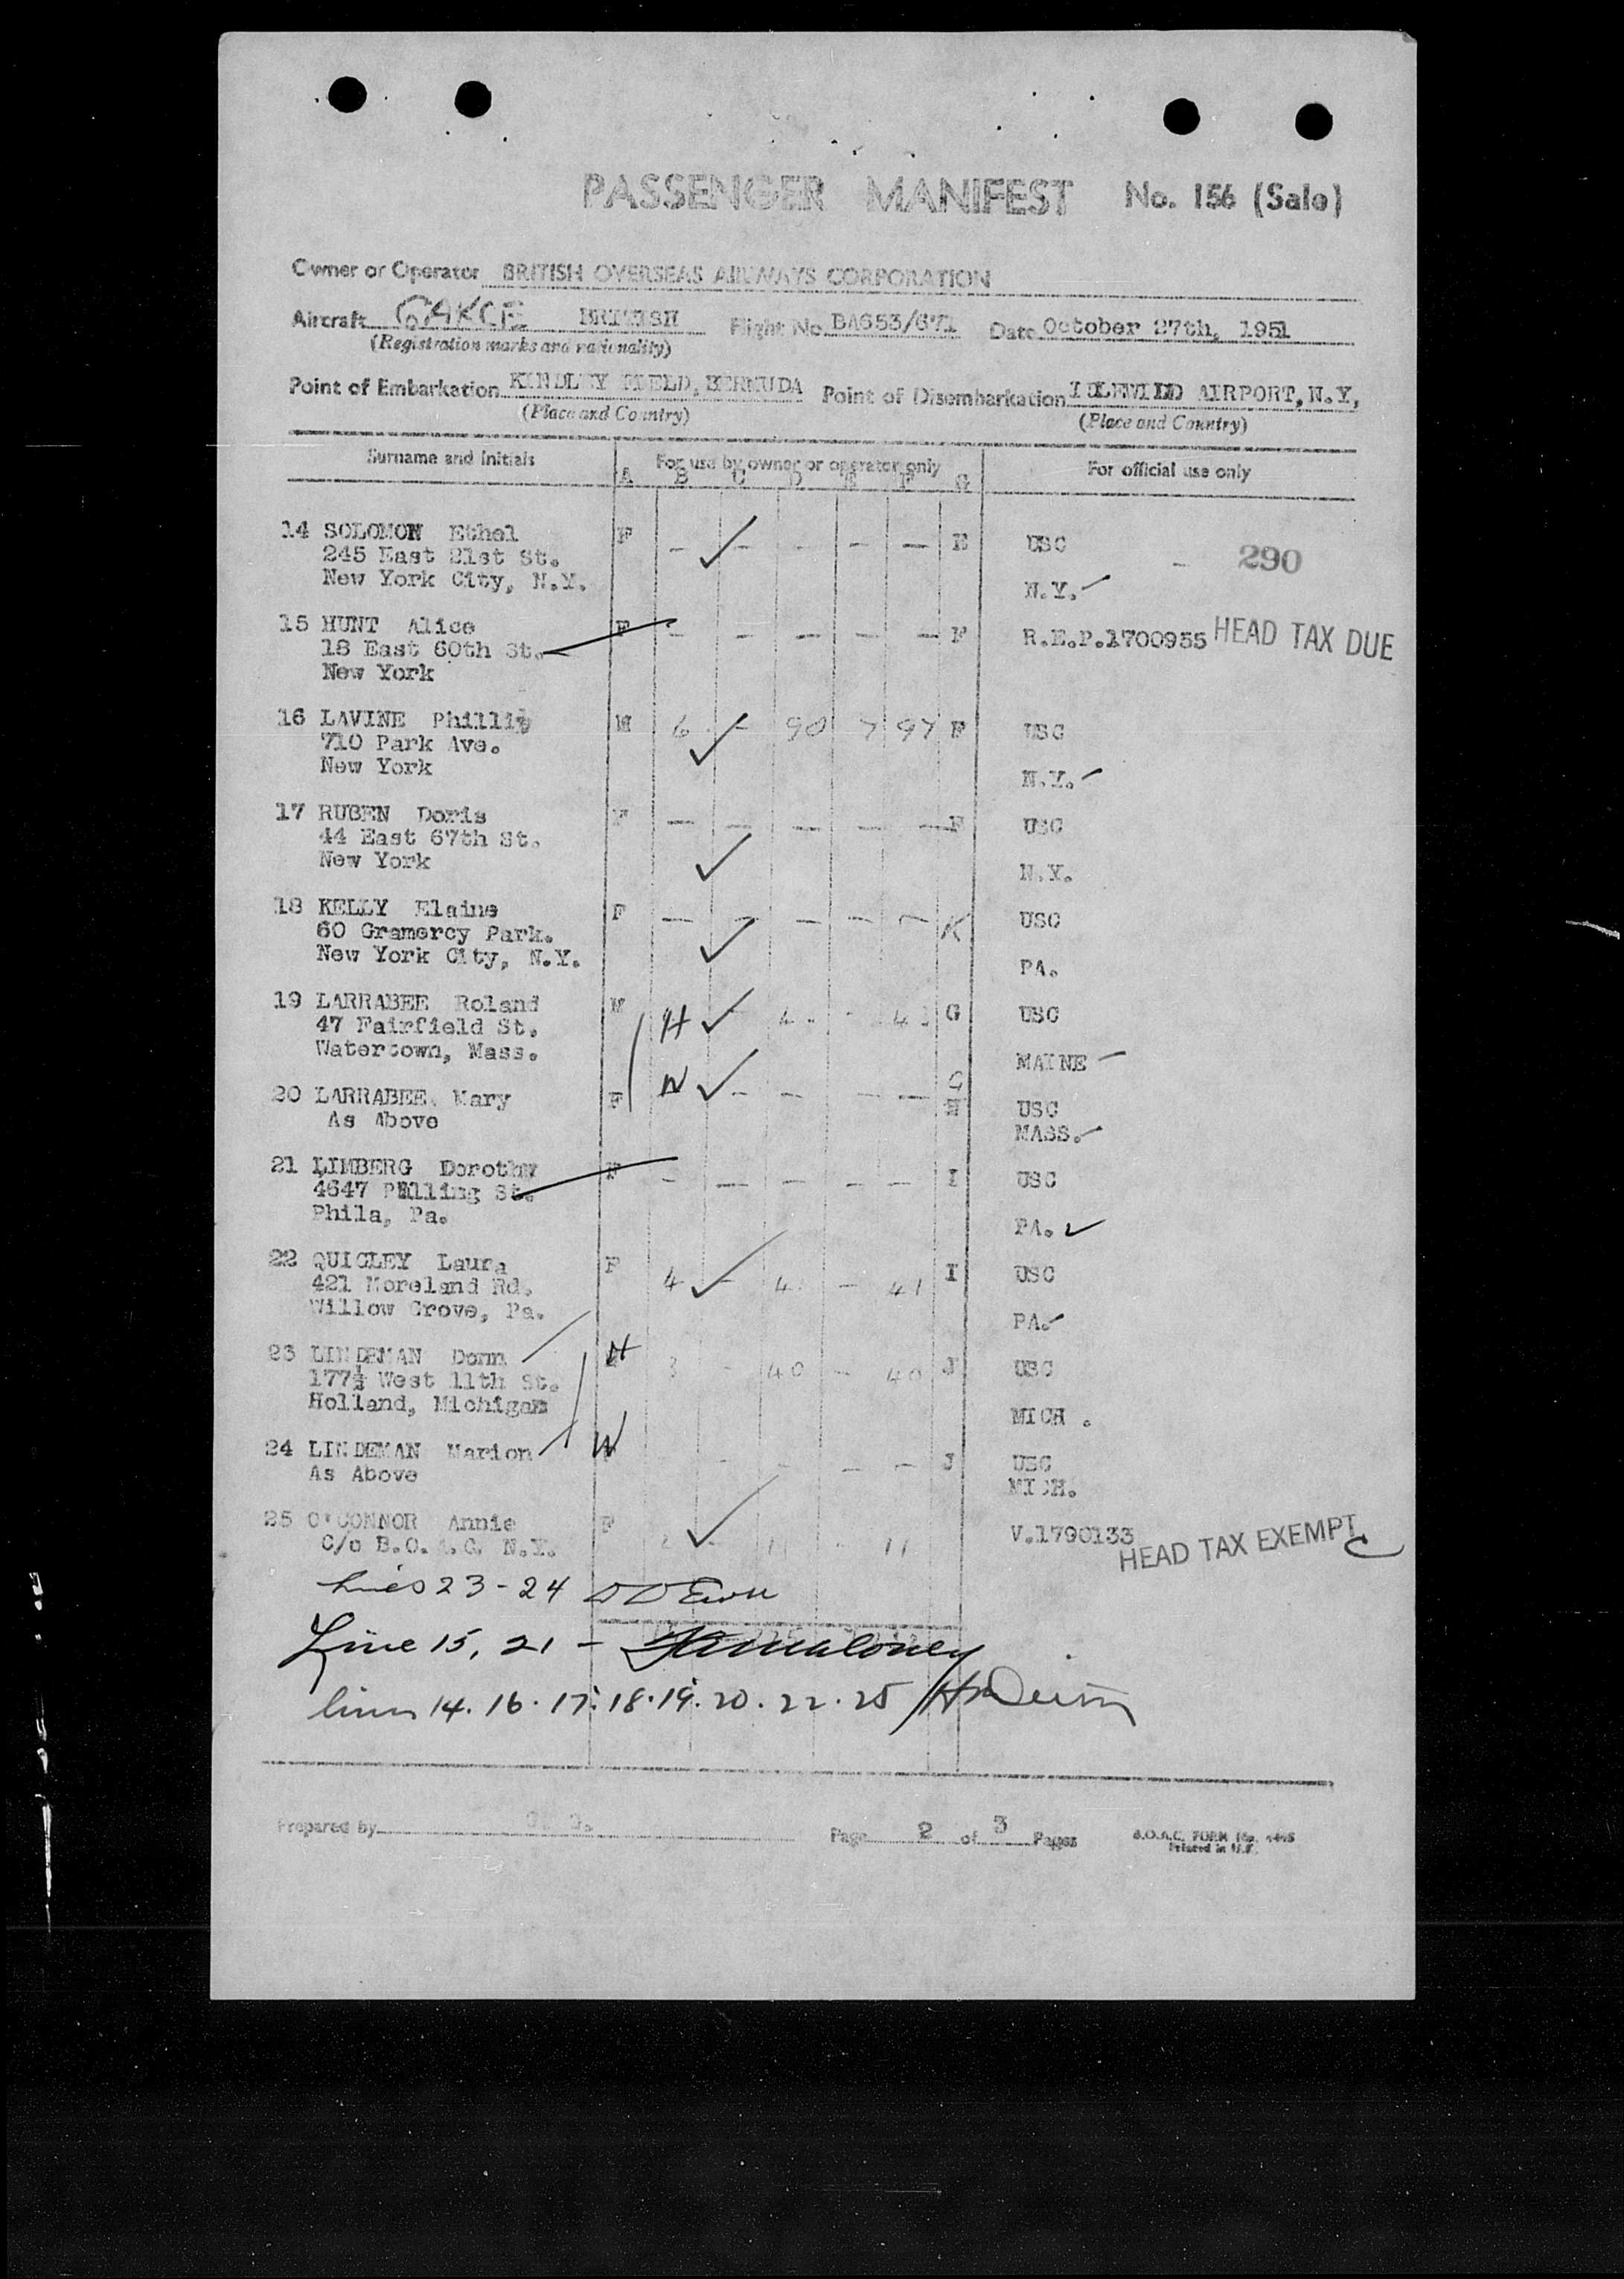 PASSENGER MANIFEST No. 156 (Sale)
Owner or Operator BRITISH OVERSEAS AIRWAYS CORPORATION
Aircraft GAKCE BRITISH Flight No. BA653/671 Date October 27th, 1951
(Registration marks and nationality)
Point of Embarkation KINDLEY FIELD, BERMUDA Point of Disembarkation IDLEWILD AIRPORT, N.Y,
(Place and Country) (Place and Country)
Surname and Initials For use by owner or operator only For official use only
A B C D E F G
14 SOLOMON Ethel F - - - - - E USC
245 East 21st St. 290
New York City, N.Y. N.Y.
15 HUNT Alice F - - - - - F R.E.P.1700955 HEAD TAX DUE
18 East 60th St.
New York
16 LAVINE Phillip M 6 - 90 7 97 F USC
710 Park Ave.
New York N.Y.
17 RUBEN Doris F - - - - - F USC
44 East 67th St.
New York N.Y.
18 KELLY Elaine F - - - - - K USC
60 Gramercy Park.
New York City, N.Y. PA.
19 LARRABEE Roland M H - - G USC
47 Fairfield St.
Watertown, Mass. MAINE
20 LARRABEE Mary F W - - - - G USC
As Above MASS.
21 LIMBERG Dorothy F - - - - - I USC
4647 Pilling St.
Phila, Pa. PA.
22 QUIGLEY Laura F 4 - 41 - 41 I USC
421 Moreland Rd.
Willow Grove, Pa. PA.
23 LINDEMAN Donn H 3 - 40 - 40 J USC
177½ West 11th St.
Holland, Michigan MICH .
24 LINDEMAN Marion W - - - - J USC
As Above MICH.
25 O'CONNOR Annie F 2 - 11 - 11 V.1790133
C/o B.O.A.C. N.Y. HEAD TAX EXEMPT
Lines 23-24
Line 15, 21 - Maloney
lines 14. 16. 17. 18. 19. 20. 22. 25
Prepared by Page 2 of 3 Pages B.O.A.C. FORM No.
Printed in U.K.